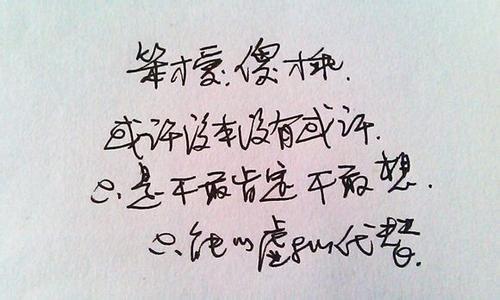 笨才爱.傻才乖.
或许没来没有或许.
只是不敢肯定不敢想.
只能以虚拟代替.